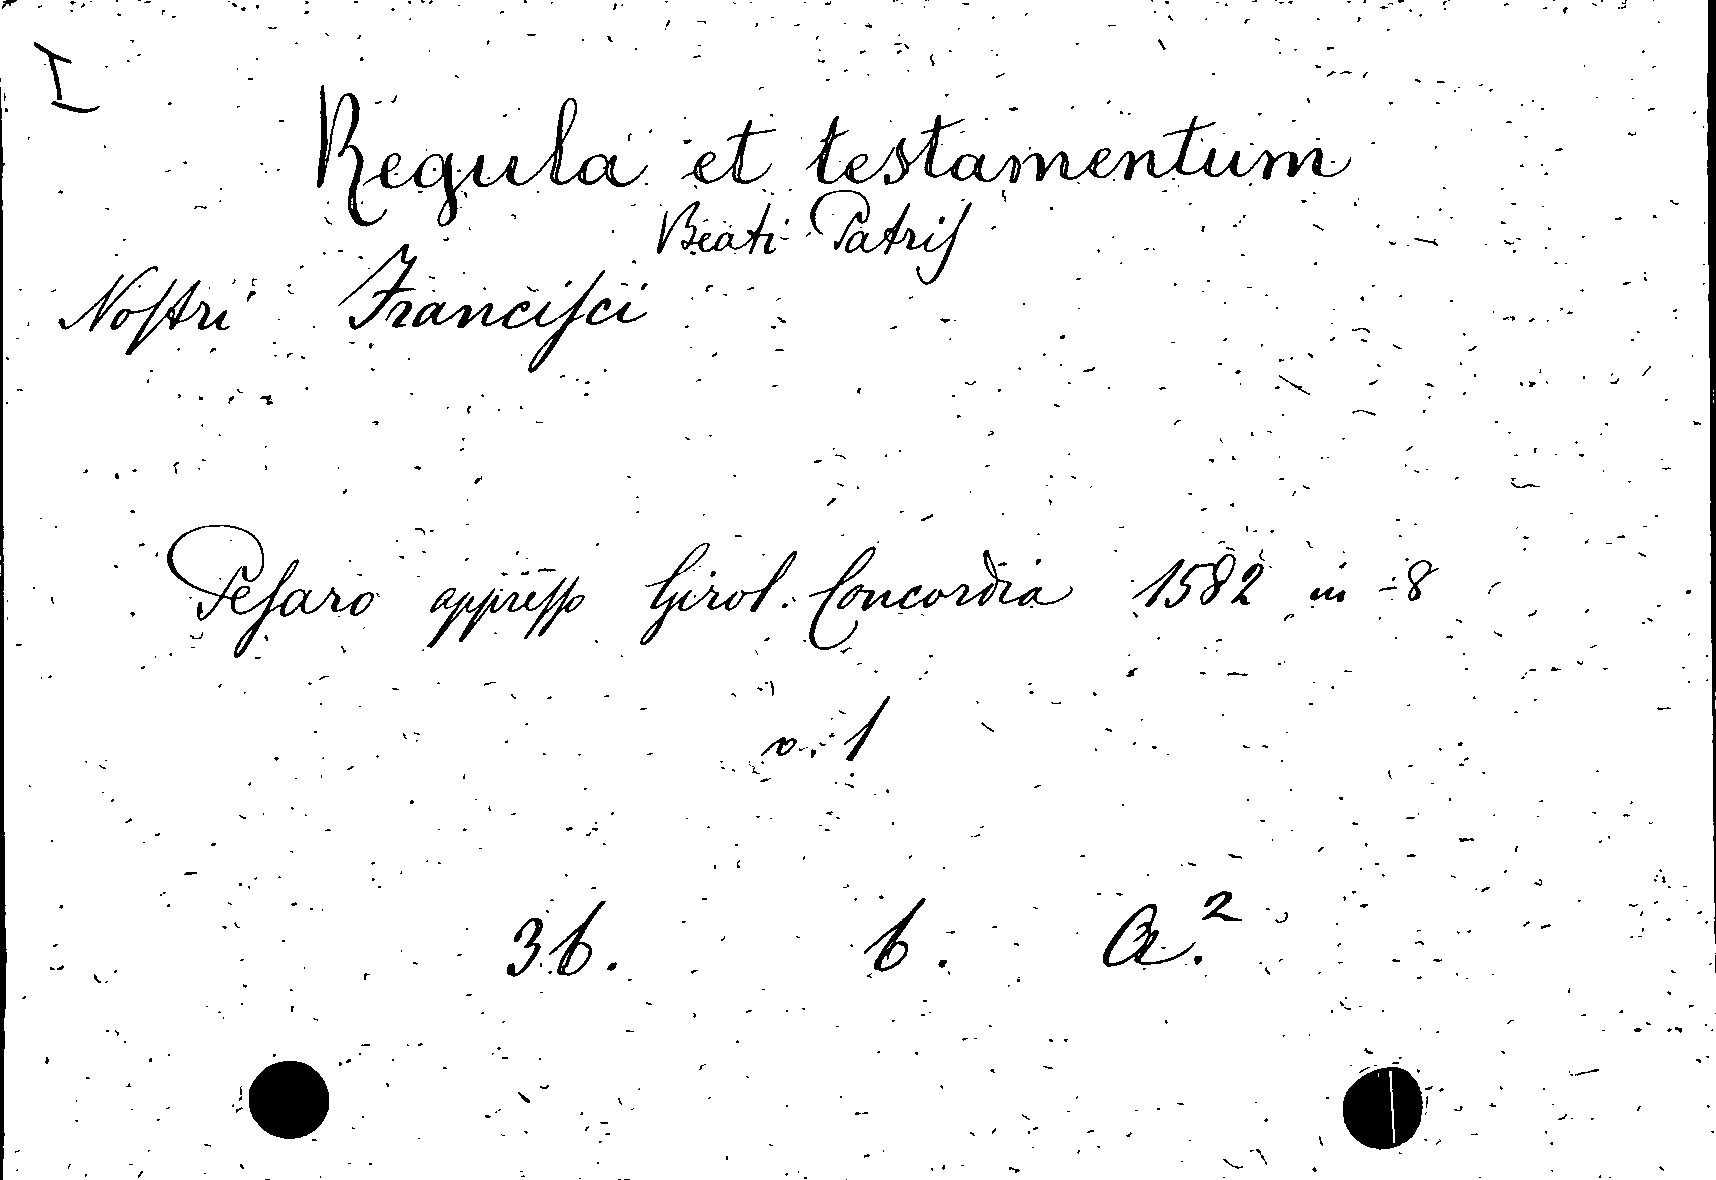 I
Regula et testamentum
Beati Patriſ
Noſtri Franciſci
Peſaro appreſſo Girol. Concordia 1582 in-8
v. 1
36. b. a.²